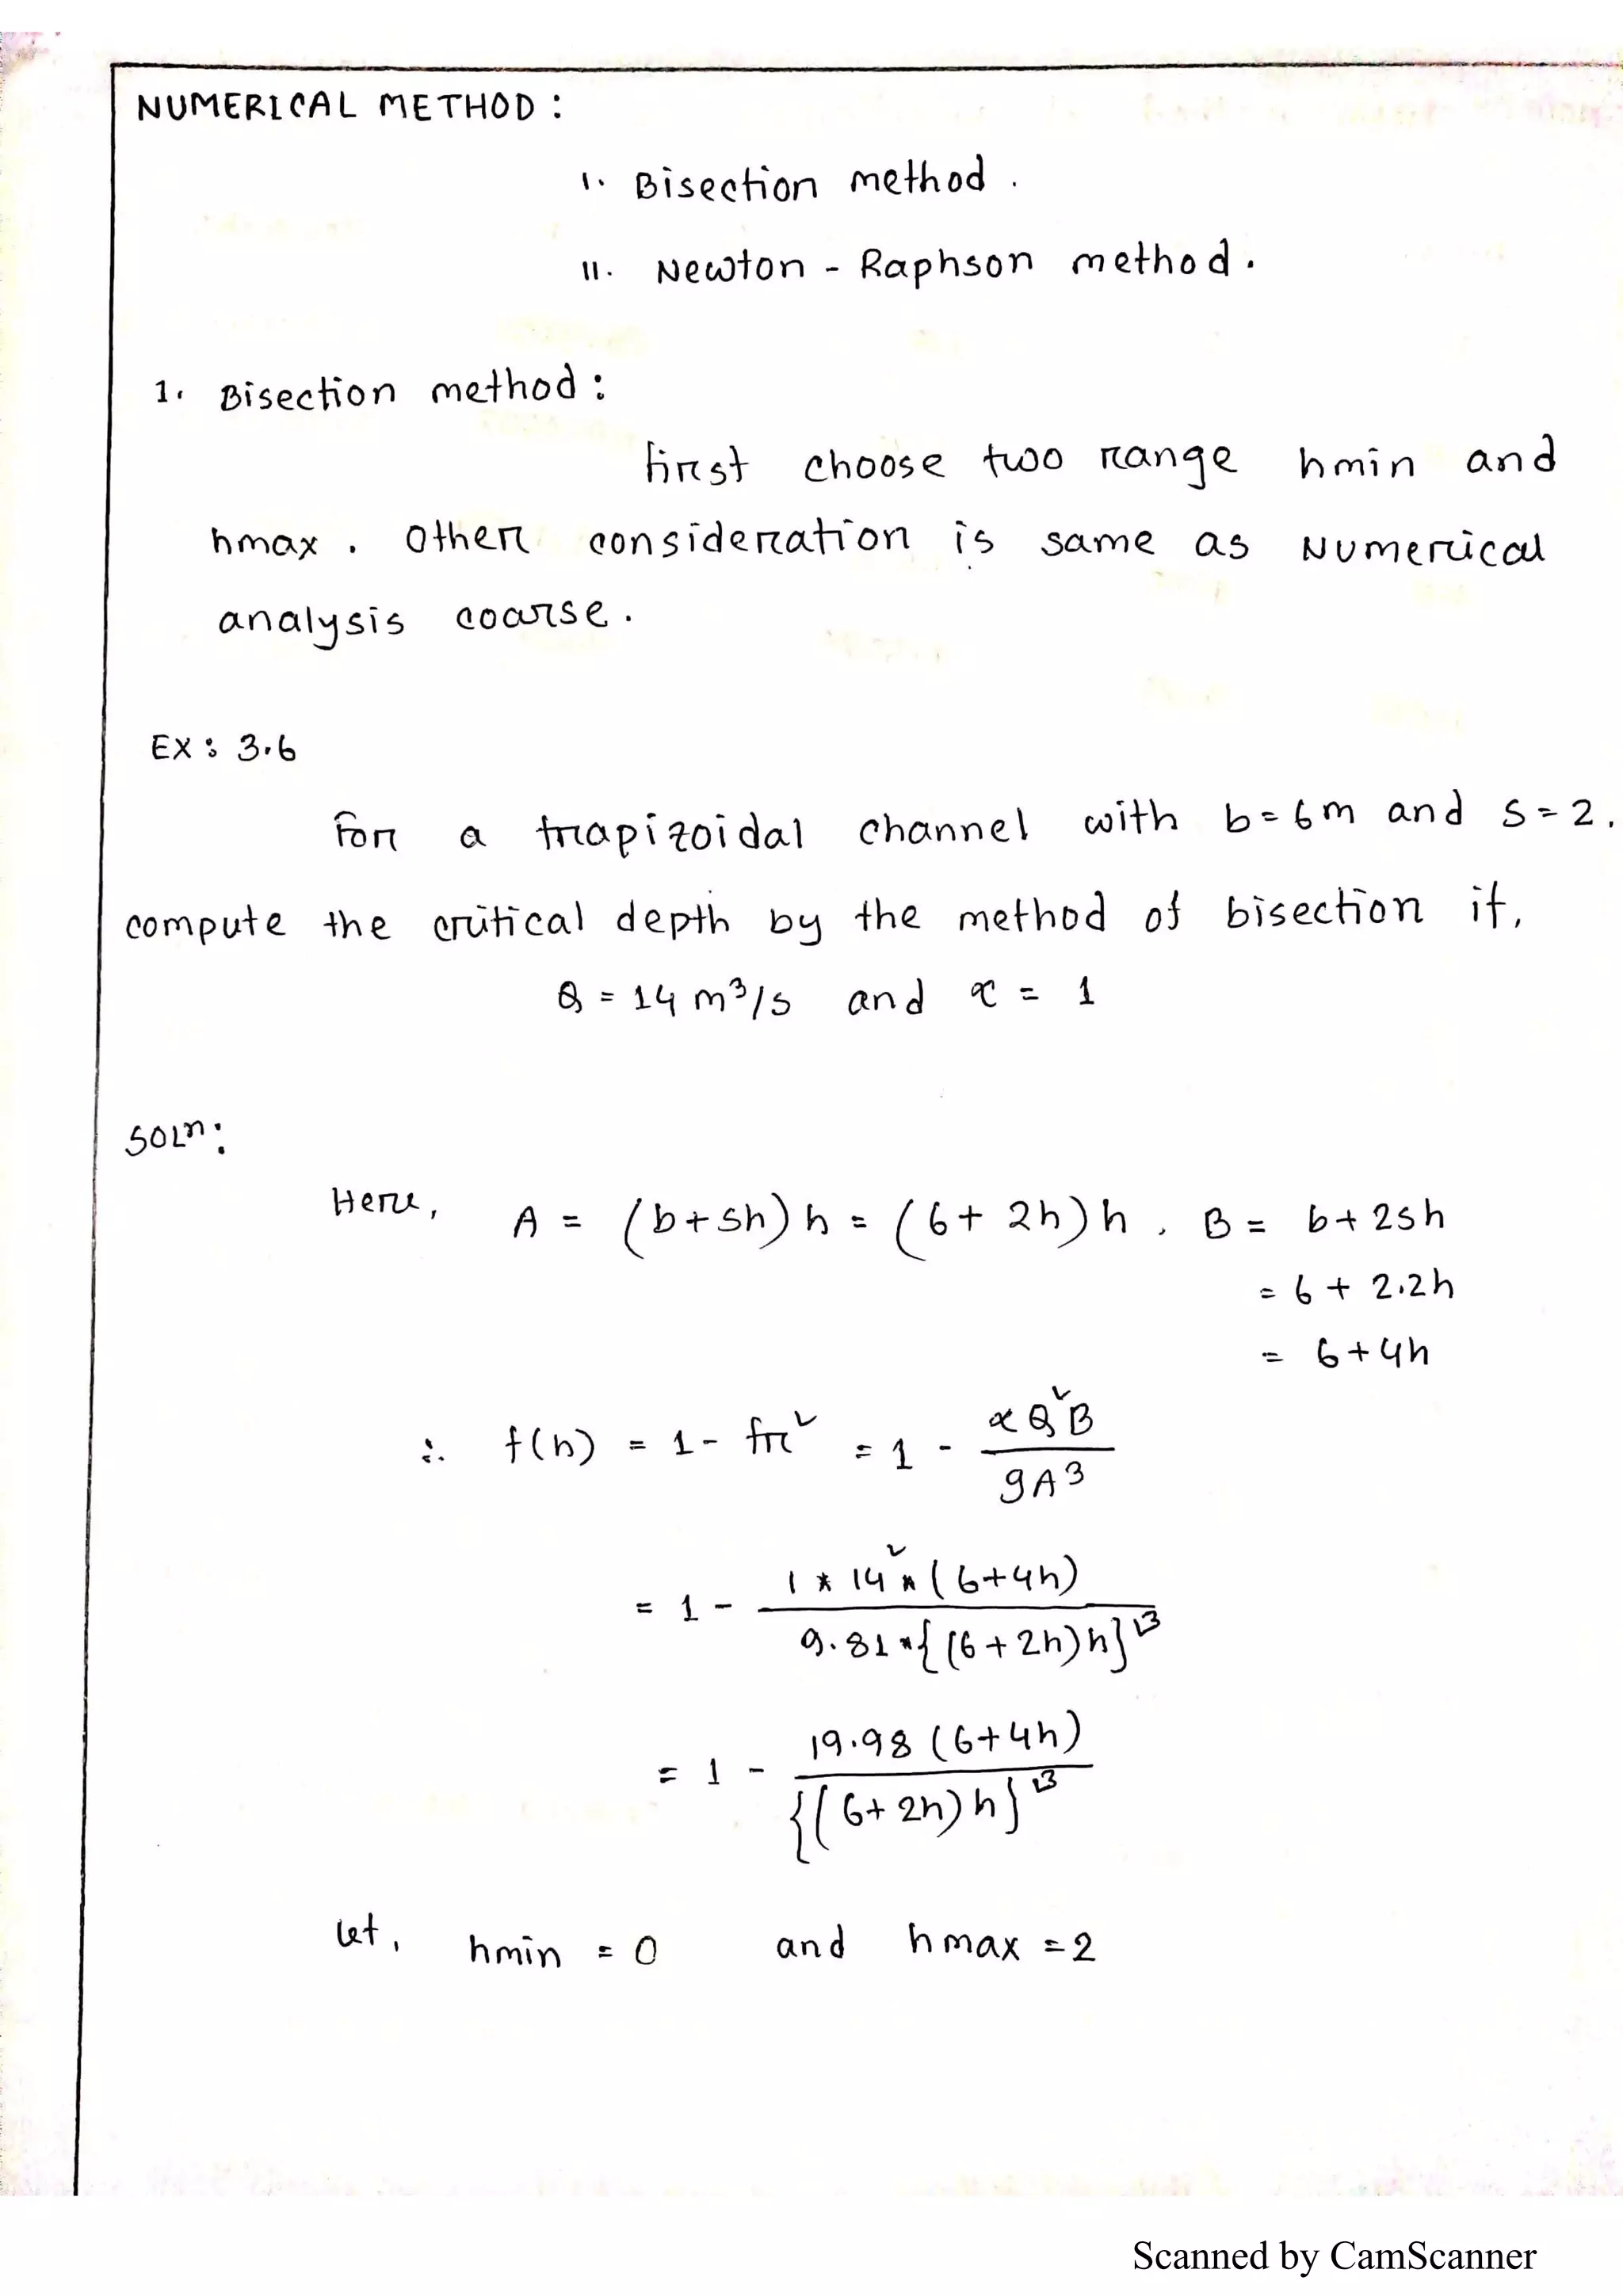 NUMERICAL METHOD :
I. Bisection method .
II. Newton - Raphson method .
1. Bisection method :
First choose two range hmin and
hmax . Other consideration is same as Numerical
analysis coarse .
EX : 3.6
For a trapizoidal channel with b = 6m and S = 2 .
compute the critical depth by the method of bisection if,
Q = 14 m³/s and α = 1
SOLⁿ:
Here, A = (b+sh) h = (6+ 2h) h , B = b+ 2sh
= 6 + 2.2h
= 6+4h
∴ f(h) = 1 - fr² = 1 - αQ²B / gA³
= 1 - 1 * 14² * (6+4h) / 9.81 * {(6+2h)h}³
= 1 - 19.98 (6+4h) / {(6+2h)h}³
let, hmin = 0 and hmax = 2
Scanned by CamScanner